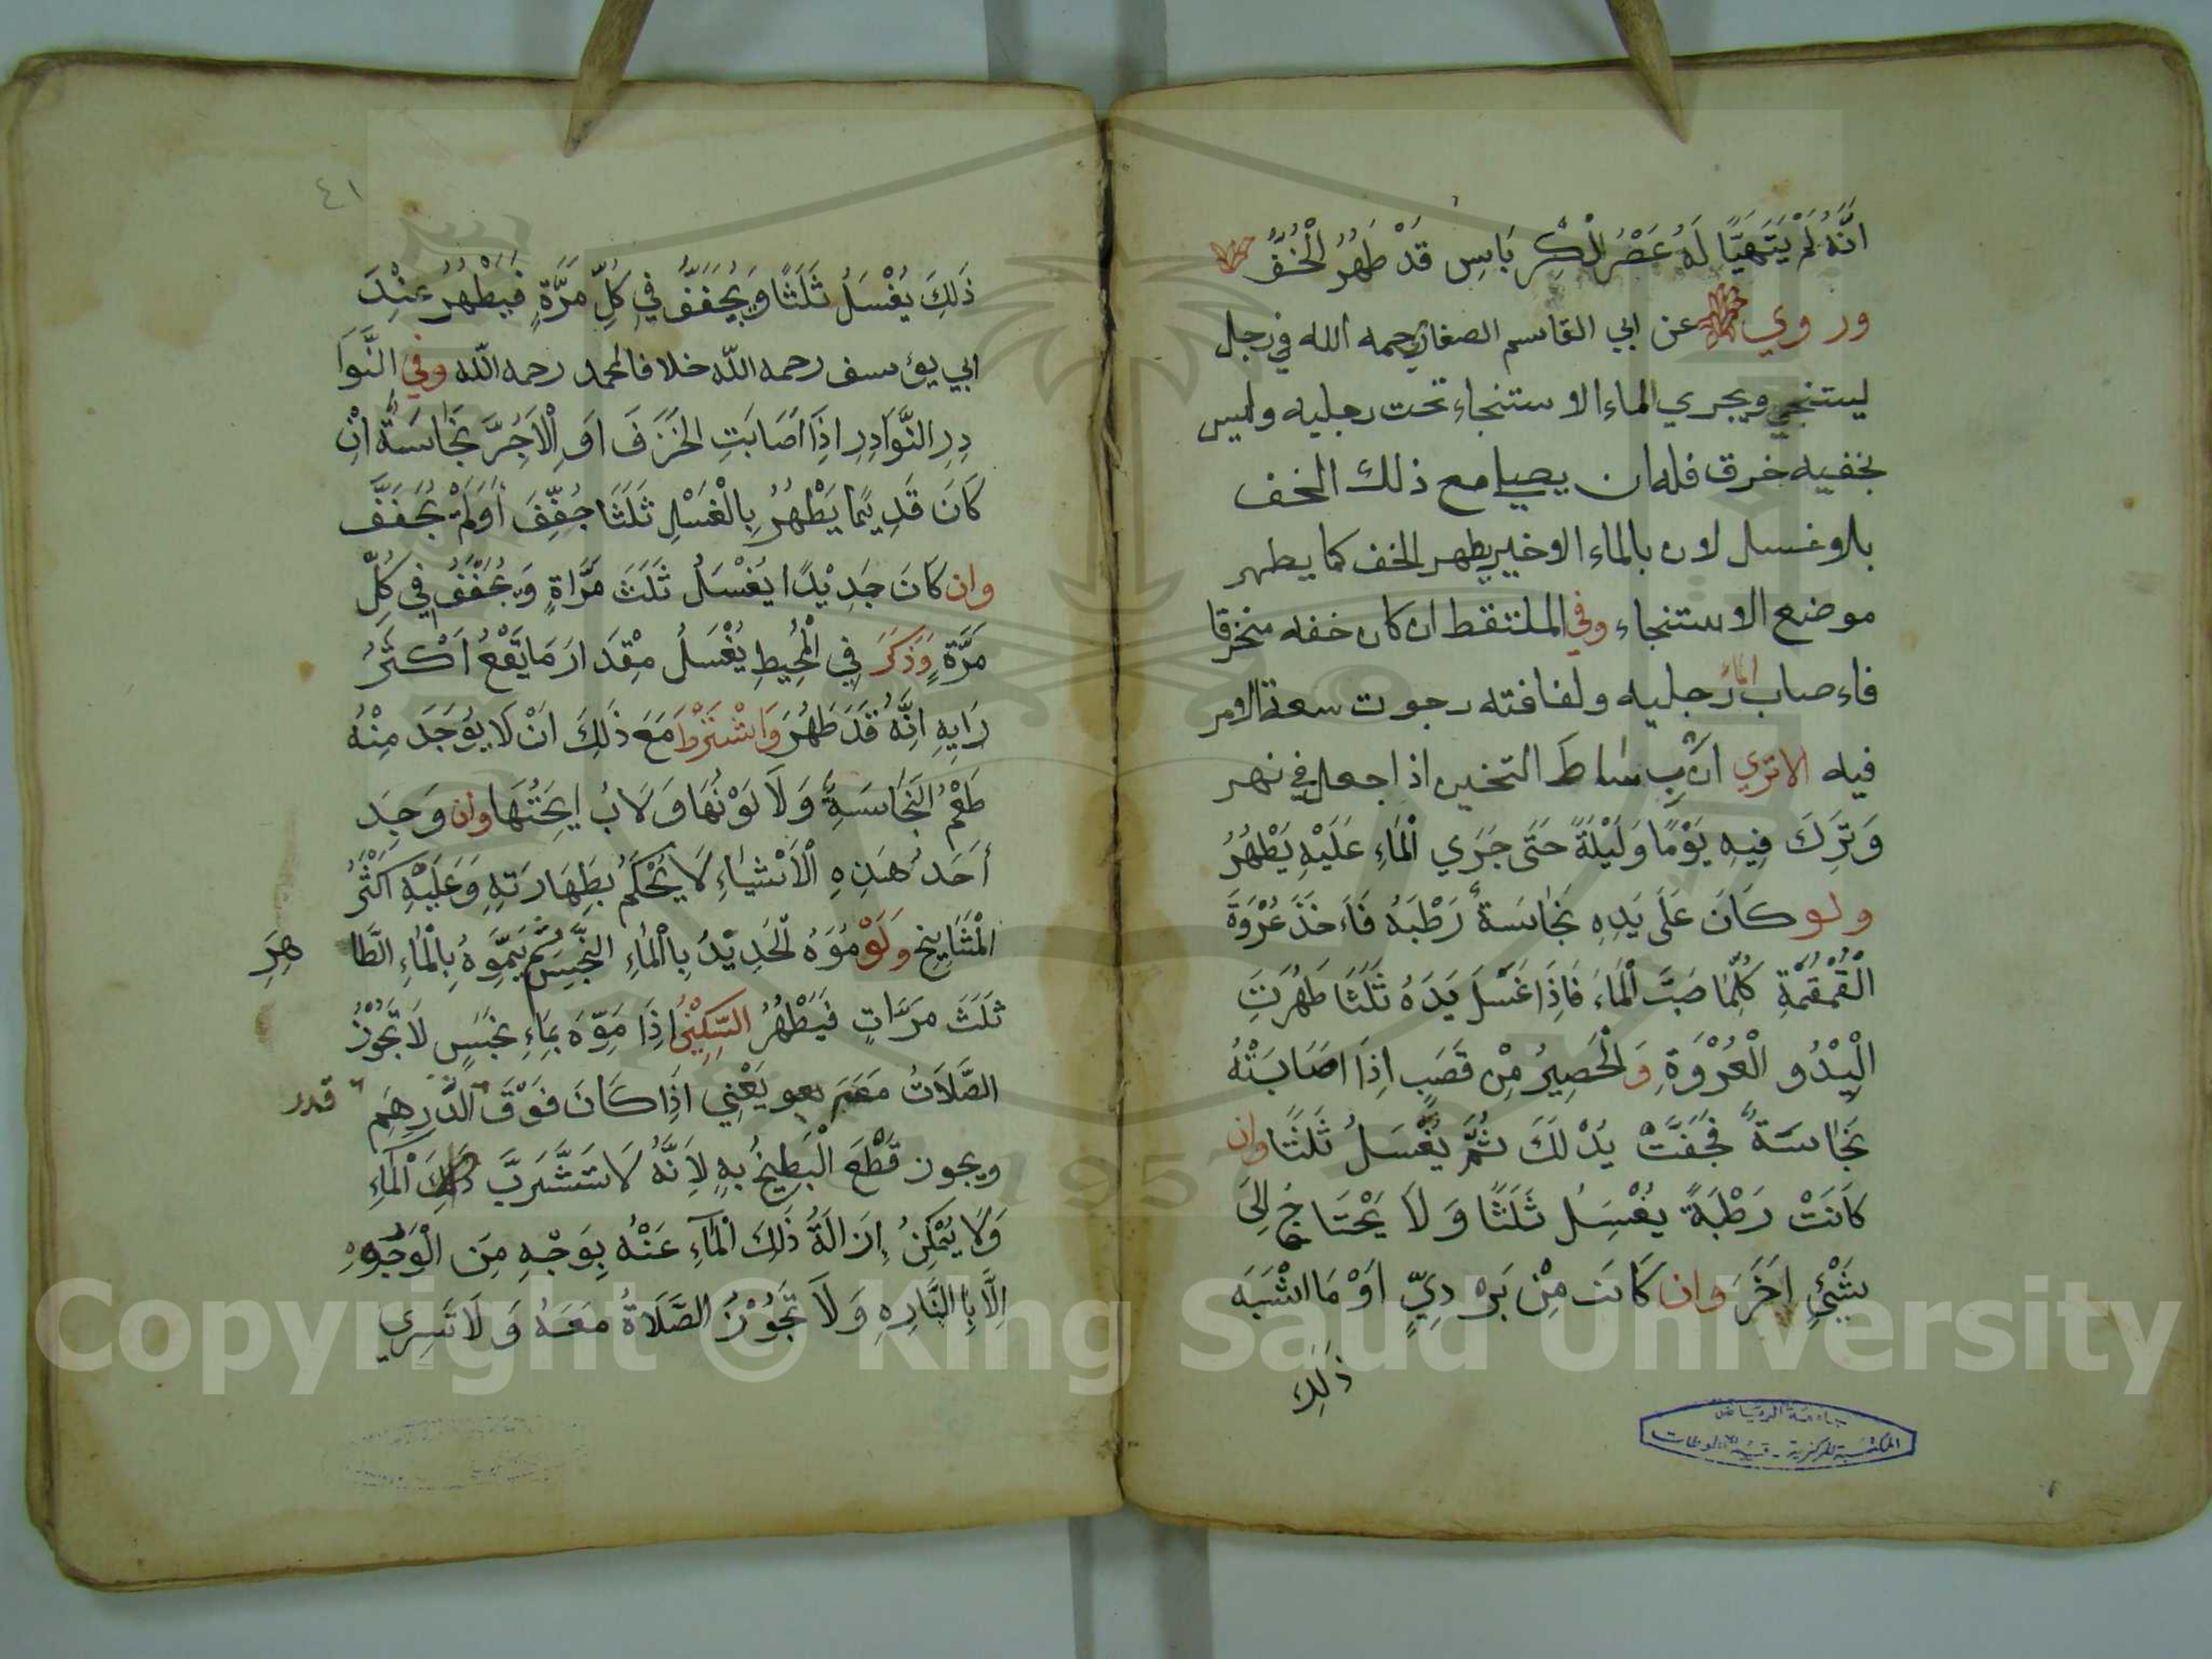 انَّهُ لَمْ يَتَهَيَّا لَهُ عَصْرُ الْكِرْبَاسِ قَدْ طَهُرَ الْخُفُّ
وروي عن ابي القاسم الصفار رحمه الله في رجل
ليستنجي ويجري الماء الاستنجاء تحت رجليه وليس
بخفيه خرق فله ان يصلي مع ذلك الخف
بلا غسل لان بالماء الاخير يطهر الخف كما يطهر
موضع الاستنجاء وفي الملتقط ان كان خفه منخرقا
فاءصاب الماء رجليه ولفافته رجوت سعة الامر
فيه الا تري ان بساط التخين اذا جعل في نهر
وَتَرِكَ فِيهِ يَوْمًا وَلَيْلَةً حَتَى جَرَي الْمَاءِ عَلَيْهِ يَطْهُرُ
ولو كَانَ عَلَى يَدِهِ نَجَاسَةٌ رَطْبَهُ فَاَخَذَ عُرْوَةَ
الْقُمْقُمَةِ كُلَّمَا صَبَّ الْمَاءَ فَاِذَا غَسَلَ يَدَهُ ثَلَثًا طَهُرَتِ
الْيَدُ و الْعُرْوَةِ وَالْحَصِيرُ مِنْ قَصَبٍ اِذَا اصَابَتْهُ
نَجَاسَةٌ فَجَفَّتْ يُدْلَكَ ثُمَّ يُغْسَلُ ثَلَثًا وان
كَانَتْ رَطْبَةً يغْسِلُ ثَلَثًا وَلَا يَحْتَاجُ اِلَى
شَيْئٍ اخَرَ وان كَانَت مِنْ بَرْدِيٍّ اَوْ مَا اشْبَهَ
ذَلِكَ
جامعة الرياض
المكتبة المركزية - قسم المخطوطات
٤١
ذَلِكَ يُغْسَلُ ثَلَثًا وَيُجَفَفُّ فِي كُلِّ مَرَّةٍ فَيَطْهُرُ عِنْدَ
ابي يؤسف رحمه الله خلافا لمحمد رحمه الله وفي النَّوَا
دِرِ النَّوَادِرِ اِذَا اَصَابَتِ الخَزَفَ اَوِ الْاَجُرَّ نَجَاسَةٌ اِنْ
كَانَ قَدِيمًا يَطْهُرُ بِالْغَسْلِ ثَلَثًا جُفِّفَ اَوَلَمْ يُجَفَّفَ
وان كَانَ جَدِيْدًا يُغْسَلُ ثَلَثَ مَرَّاةٍ وَيُجَفَّفُ فِي كُلِّ
مَرَّةٍ وَذَكَرَ فِي الْمُحِيطِ يُغْسَلُ مِقْدَارَ مَا يَقَعُ اَكْثَرُ
رَايِهِ انَّهُ قَدَ طَهُرَ وَاشْتَرَطَ مَعَ ذَلِكَ اَنْ لَا يُوْجَدَ مِنْهُ
طَعْمُ النَّجَاسَةِ وَلَا لَوْنُهَا وَلَا رَايِحَتُهَا وان وَجِدَ
أَحَدُ هَذِهِ الْاَشْيَاءِ لَا يُحْكَمُ بِطَهَارَتِهِ وَعَلَيْهِ اَكْثَرُ
الْمَشَايِخِ وَلَوْ مُوَهُ الْحَدِيْدُ بِاالْمَاءِ النَّجِسِ ثُمَّ يُمَوِّهُ بِالْمَاءِ الطَّا هِرِ
ثَلَثَ مَرَّاتٍ فَيَطْهُرُ السِّكِيْنُ اِذَا مَوِّهَ بِمَاءٍ نَجَسٍ لَا تَجُوْزُ
الصَّلَاتُ مَعَهُ يَعْنِي اَذَا كَانَ فَوْقَ الدِّرْهَمِ قدر
ويجوز قَطْعَ الْبَطِيخُ بِهِ لِاَنَّهُ لَا تَتَشَّرَبَّ ذَلِكَ الْمَاءِ
وَلَا يُمْكِنُ اِزَالَةُ ذَلِكَ الْمَاءِ عَنْهُ بِوَجْهٍ مِنَ الْوَجُوهِ
اِلَّا بِاالنَّارِهِ وَلَا تَجُوْزُ الصَّلَاةُ مَعَهُ وَلَا تَسِرِي
1957
Copyright © King Saud University